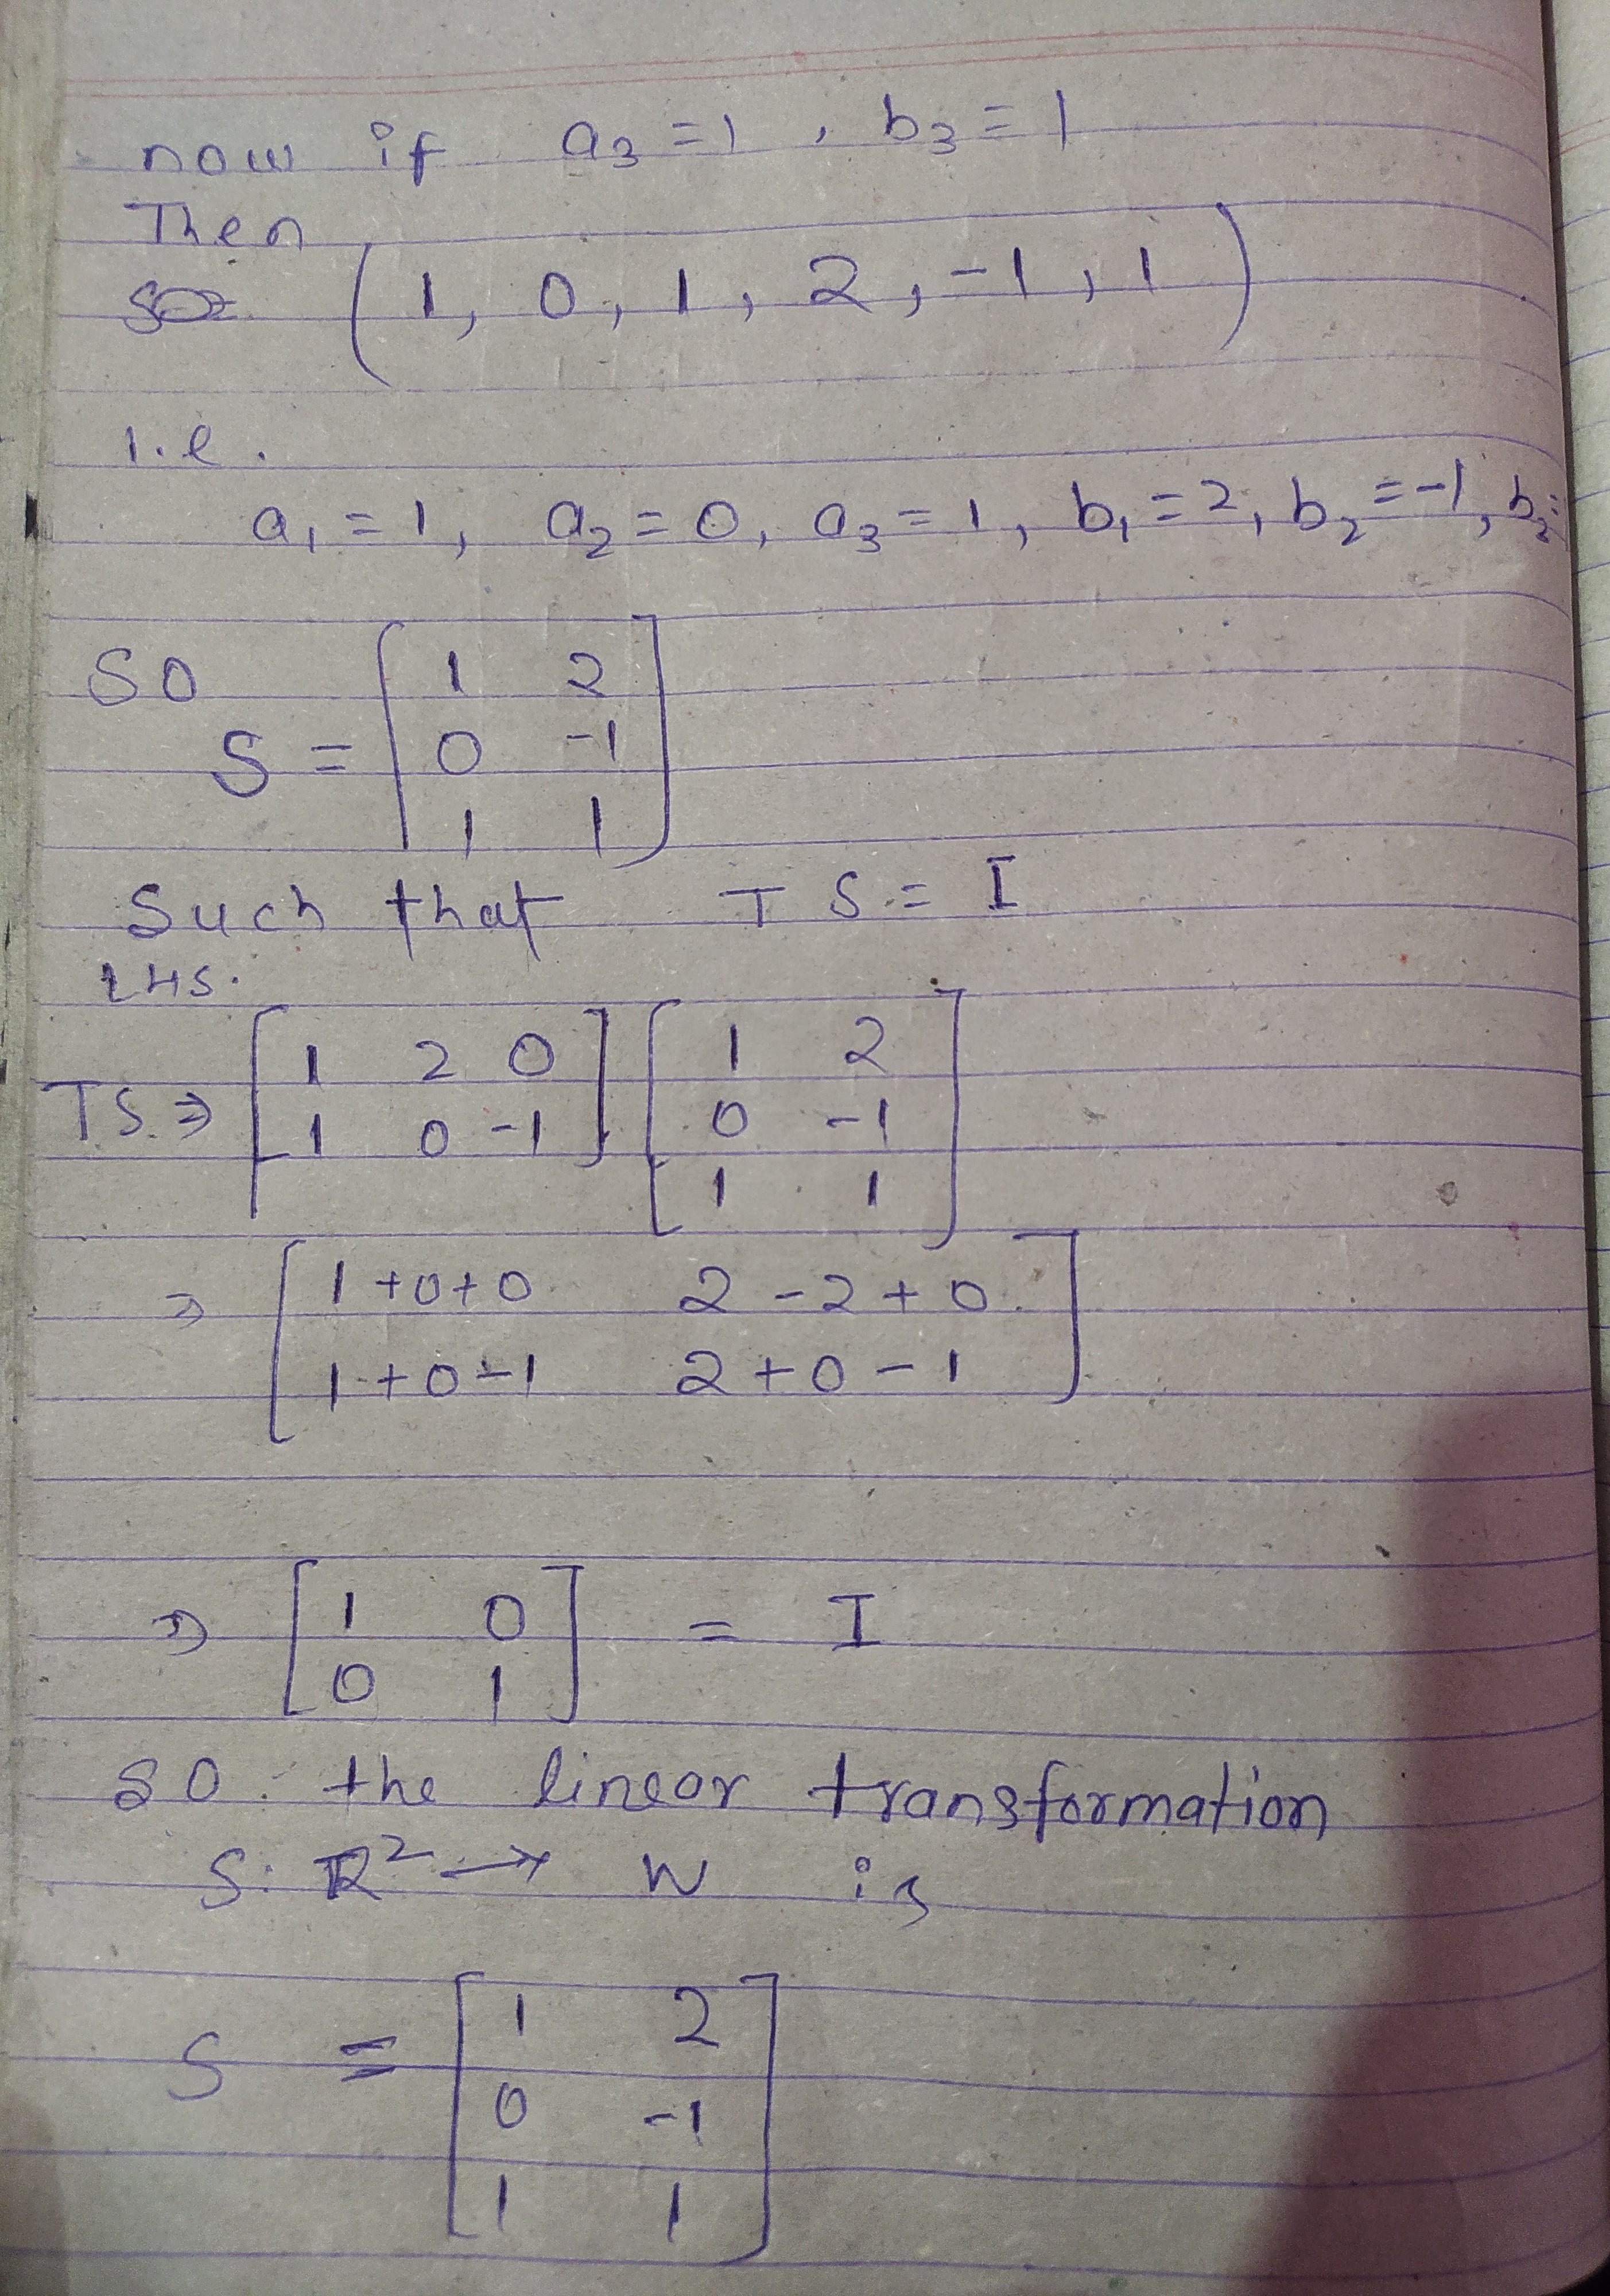 now if a₃ = 1 , b₃ = 1
Then
( 1, 0, 1, 2, -1, 1 )
i.e.
a₁ = 1, a₂ = 0, a₃ = 1, b₁ = 2, b₂ = -1, b₃ =
SO
S = [ 1 2
0 -1
1 1 ]
Such that TS = I
LHS.
TS ⇒ [ 1 2 0
1 0 -1 ] [ 1 2
0 -1
1 1 ]
⇒ [ 1+0+0 2-2+0
1+0-1 2+0-1 ]
⇒ [ 1 0
0 1 ] = I
SO the linear transformation
S: R² → W is
S = [ 1 2
0 -1
1 1 ]